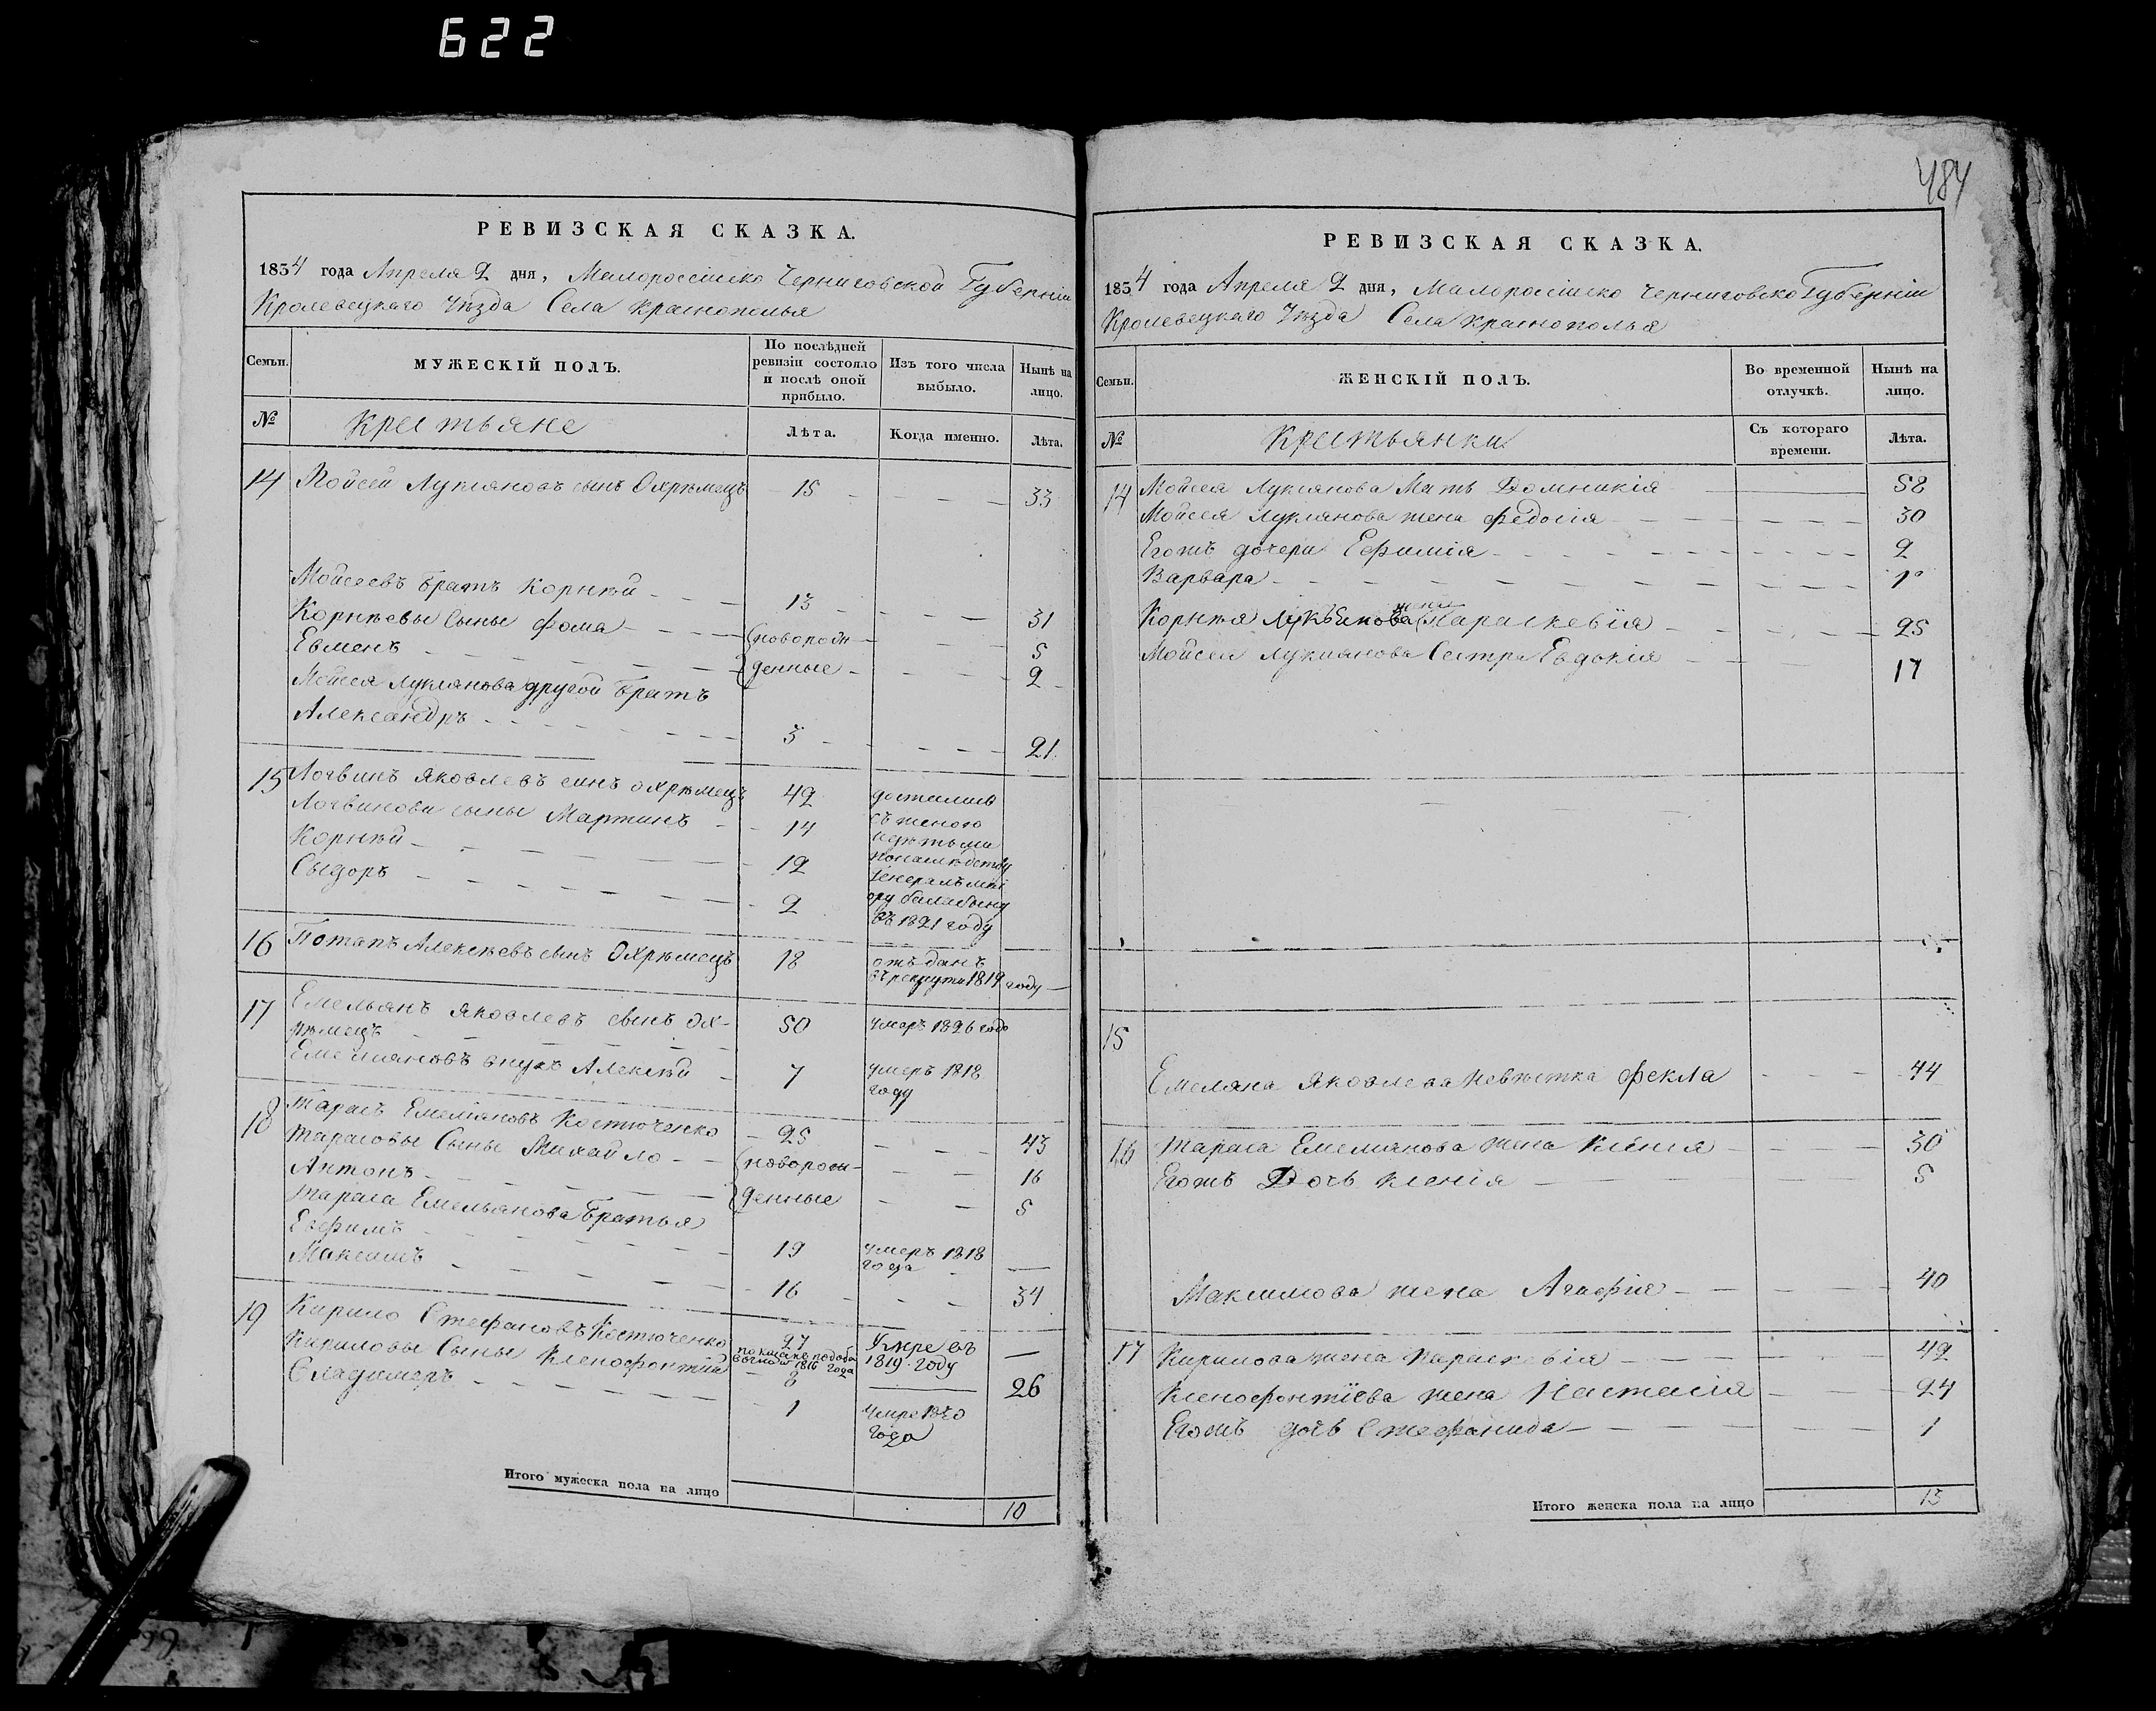 622
РЕВИЗСКАЯ СКАЗКА.
1834 года Апреля 2 дня, Малороссійско Черниговской Губерніи
Кролевецкаго Уѣзда Села Краснополья
Семьи.
МУЖЕСКІЙ ПОЛЪ.
По послѣдней ревизіи состояло и послѣ оной прибыло.
Изъ того числа выбыло.
Нынѣ на лицо.
№ Крестьяне Лѣта. Когда именно. Лѣта.
14 Мойсей Лукяновъ сынъ Охрѣмецъ 15 33
Мойсеевъ братъ Корнѣй 13 31
Корнѣевы сыны Фома (новорож- 5
Евменъ денные 2
Мойсея Лукянова другой братъ
Александръ 3 21
15 Логвинъ Яковлевъ сынъ Охрѣмецъ 42 достались
Логвинови сыны Мартинъ 14 съ женою
и дѣтьми
Корнѣй 12 по наслѣдству
Сыдоръ 2
въ 1821 году
16 Потапъ Алексѣевъ сынъ Охрѣмецъ 18 отъданъ
въ рекруты 1819 году
17 Емельянъ Яковлевъ сынъ Ох-
рѣмецъ 50 умеръ 1826 года
Емелияновъ внукъ Алексѣй 7 умеръ 1818
году
18 Тарасъ Емеляновъ Костюченко 25 43
Тарасовы Сыны Михайло (новорож- 16
Антонъ денные 5
Тараса Емельянова братья
Евфимъ 19 умеръ 1818
года
Максимъ 16 34
19 Кирило Стефановъ Костюченко 27 Умре въ
1819 году
Кириловы Сыны Ксенофонтий 8 26
Владимеръ 1 умре 1820
года
Итого мужеска пола на лицо 10
484
РЕВИЗСКАЯ СКАЗКА.
1834 года Апреля 2 дня, Малоросійско Черниговско Губерніи
Кролевецкаго Уѣзда Села Краснополья
Семьи.
ЖЕНСКІЙ ПОЛЪ.
Во временной отлучкѣ.
Нынѣ на лицо.
№ Крестьянки Съ котораго времени. Лѣта.
14 Мойсея Лукянова Мать Домникія 52
Мойсея Лукянова жена Федосія 30
Егожъ дочери Ефимія 2
Варвара 1
жена
Корнѣя Лукъянова Параскевія 25
Мойсея Лукиянова Сестра Евдокія 17
15
Емеляна Яковлева невѣстка Фекла 44
16 Тараса Емелиянова жена Ксенія 30
Егожъ Дочь Ксенія 5
Максимова жена Агафия 40
17 Кирилова жена Параскевія 42
Ксенофонтіева жена Настасія 24
Егожъ дочь Стефанида 1
Итого женска пола на лицо 13